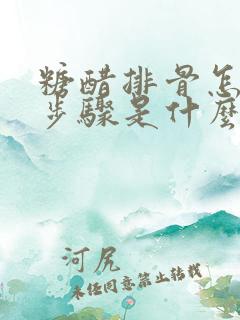 糖醋排骨怎
步骤是什麼
河尻
未经同意禁止转载